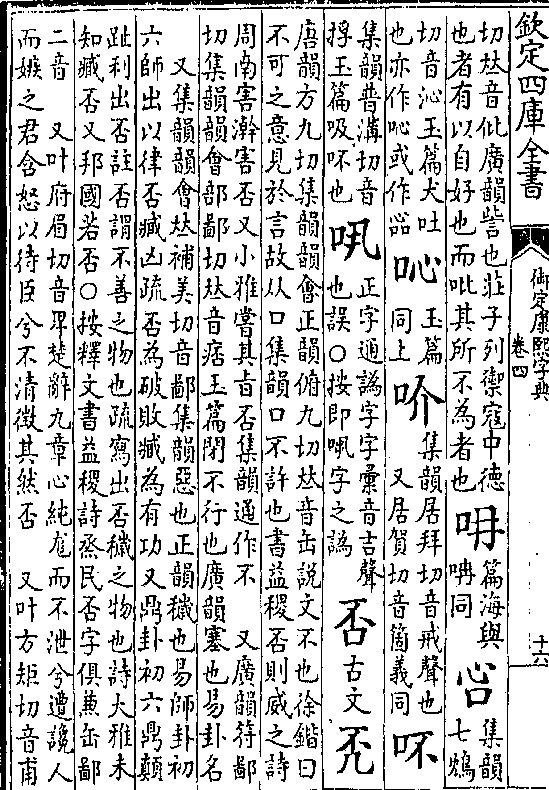 欽定四庫全書
御定康熙字典
卷四
十六
切𠀤音仳廣韻訾也莊子列禦寇中德
也者有以自好也而吡其所不為者也
篇海與
同
吢
集韻
七鴆
切音沁玉篇犬吐
也亦作吣或作
吣
玉篇
同上
吤
集韻居拜切音戒聲也
又居賀切音箇義同
吥
集韻普溝切音
捊玉篇吸吥也
正字通譌字字彙音吉聲
也誤○按即字之譌
否
古文
唐韻方九切集韻韻會正韻俯九切𠀤音缶說文不也徐鍇曰
不可之意見於言故从口集韻口不許也書益稷否則威之詩
周南害澣害否又小雅嘗其旨否集韻通作不 又廣韻符鄙
切集韻韻會部鄙切𠀤音痞玉篇閉不行也廣韻塞也易卦名
又集韻韻會𠀤補美切音鄙集韻惡也正韻穢也易師卦初
六師出以律否臧凶疏否為破敗臧為有功又鼎卦初六鼎顛
趾利出否註否謂不善之物也疏寫出否穢之物也詩大雅未
知臧否又邦國若否○按釋文書益稷詩烝民否字俱兼缶鄙
二音 又叶府眉切音𤰞楚辭九章心純厖而不泄兮遭讒人
而嫉之君含怒以待臣兮不清徵其然否 又叶方矩切音甫